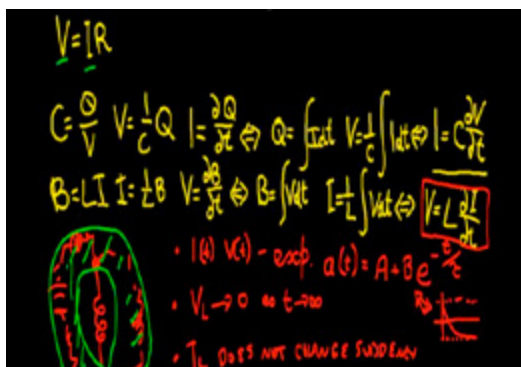 V=IR
C=Q/V V=1/C Q I=∂Q/∂t ⇔ Q=∫Idt V=1/C ∫Idt ⇔ I=C ∂V/∂t
B=LI I=1/L B V=∂B/∂t ⇔ B=∫Vdt I=1/L ∫Vdt ⇔ V=L ∂I/∂t
• I(t) V(t) - exp. a(t)=A+Be^-t/τ
• V_L→0 as t→∞
• I_L DOES NOT CHANGE SUDDENLY